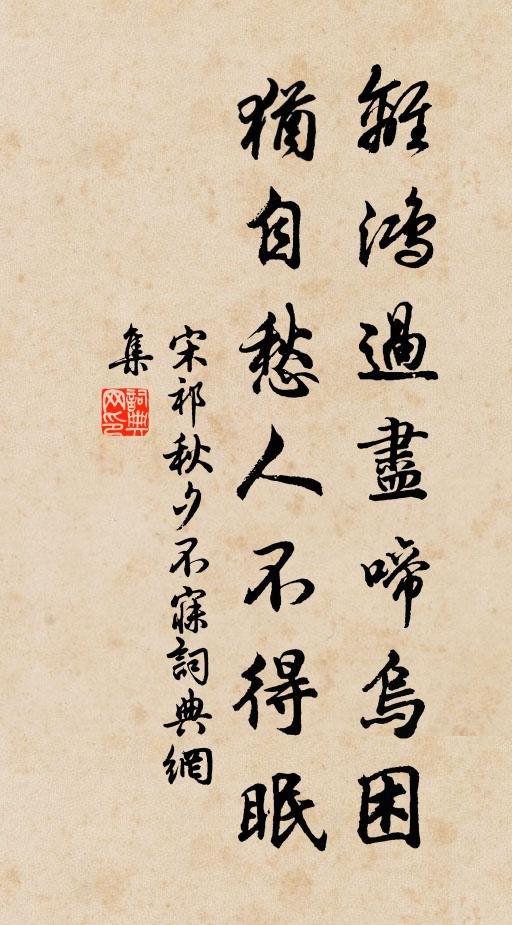 離鴻過盡啼烏困
猶自愁人不得眠
宋祁秋夕不寐詞典網
集
詞典網印